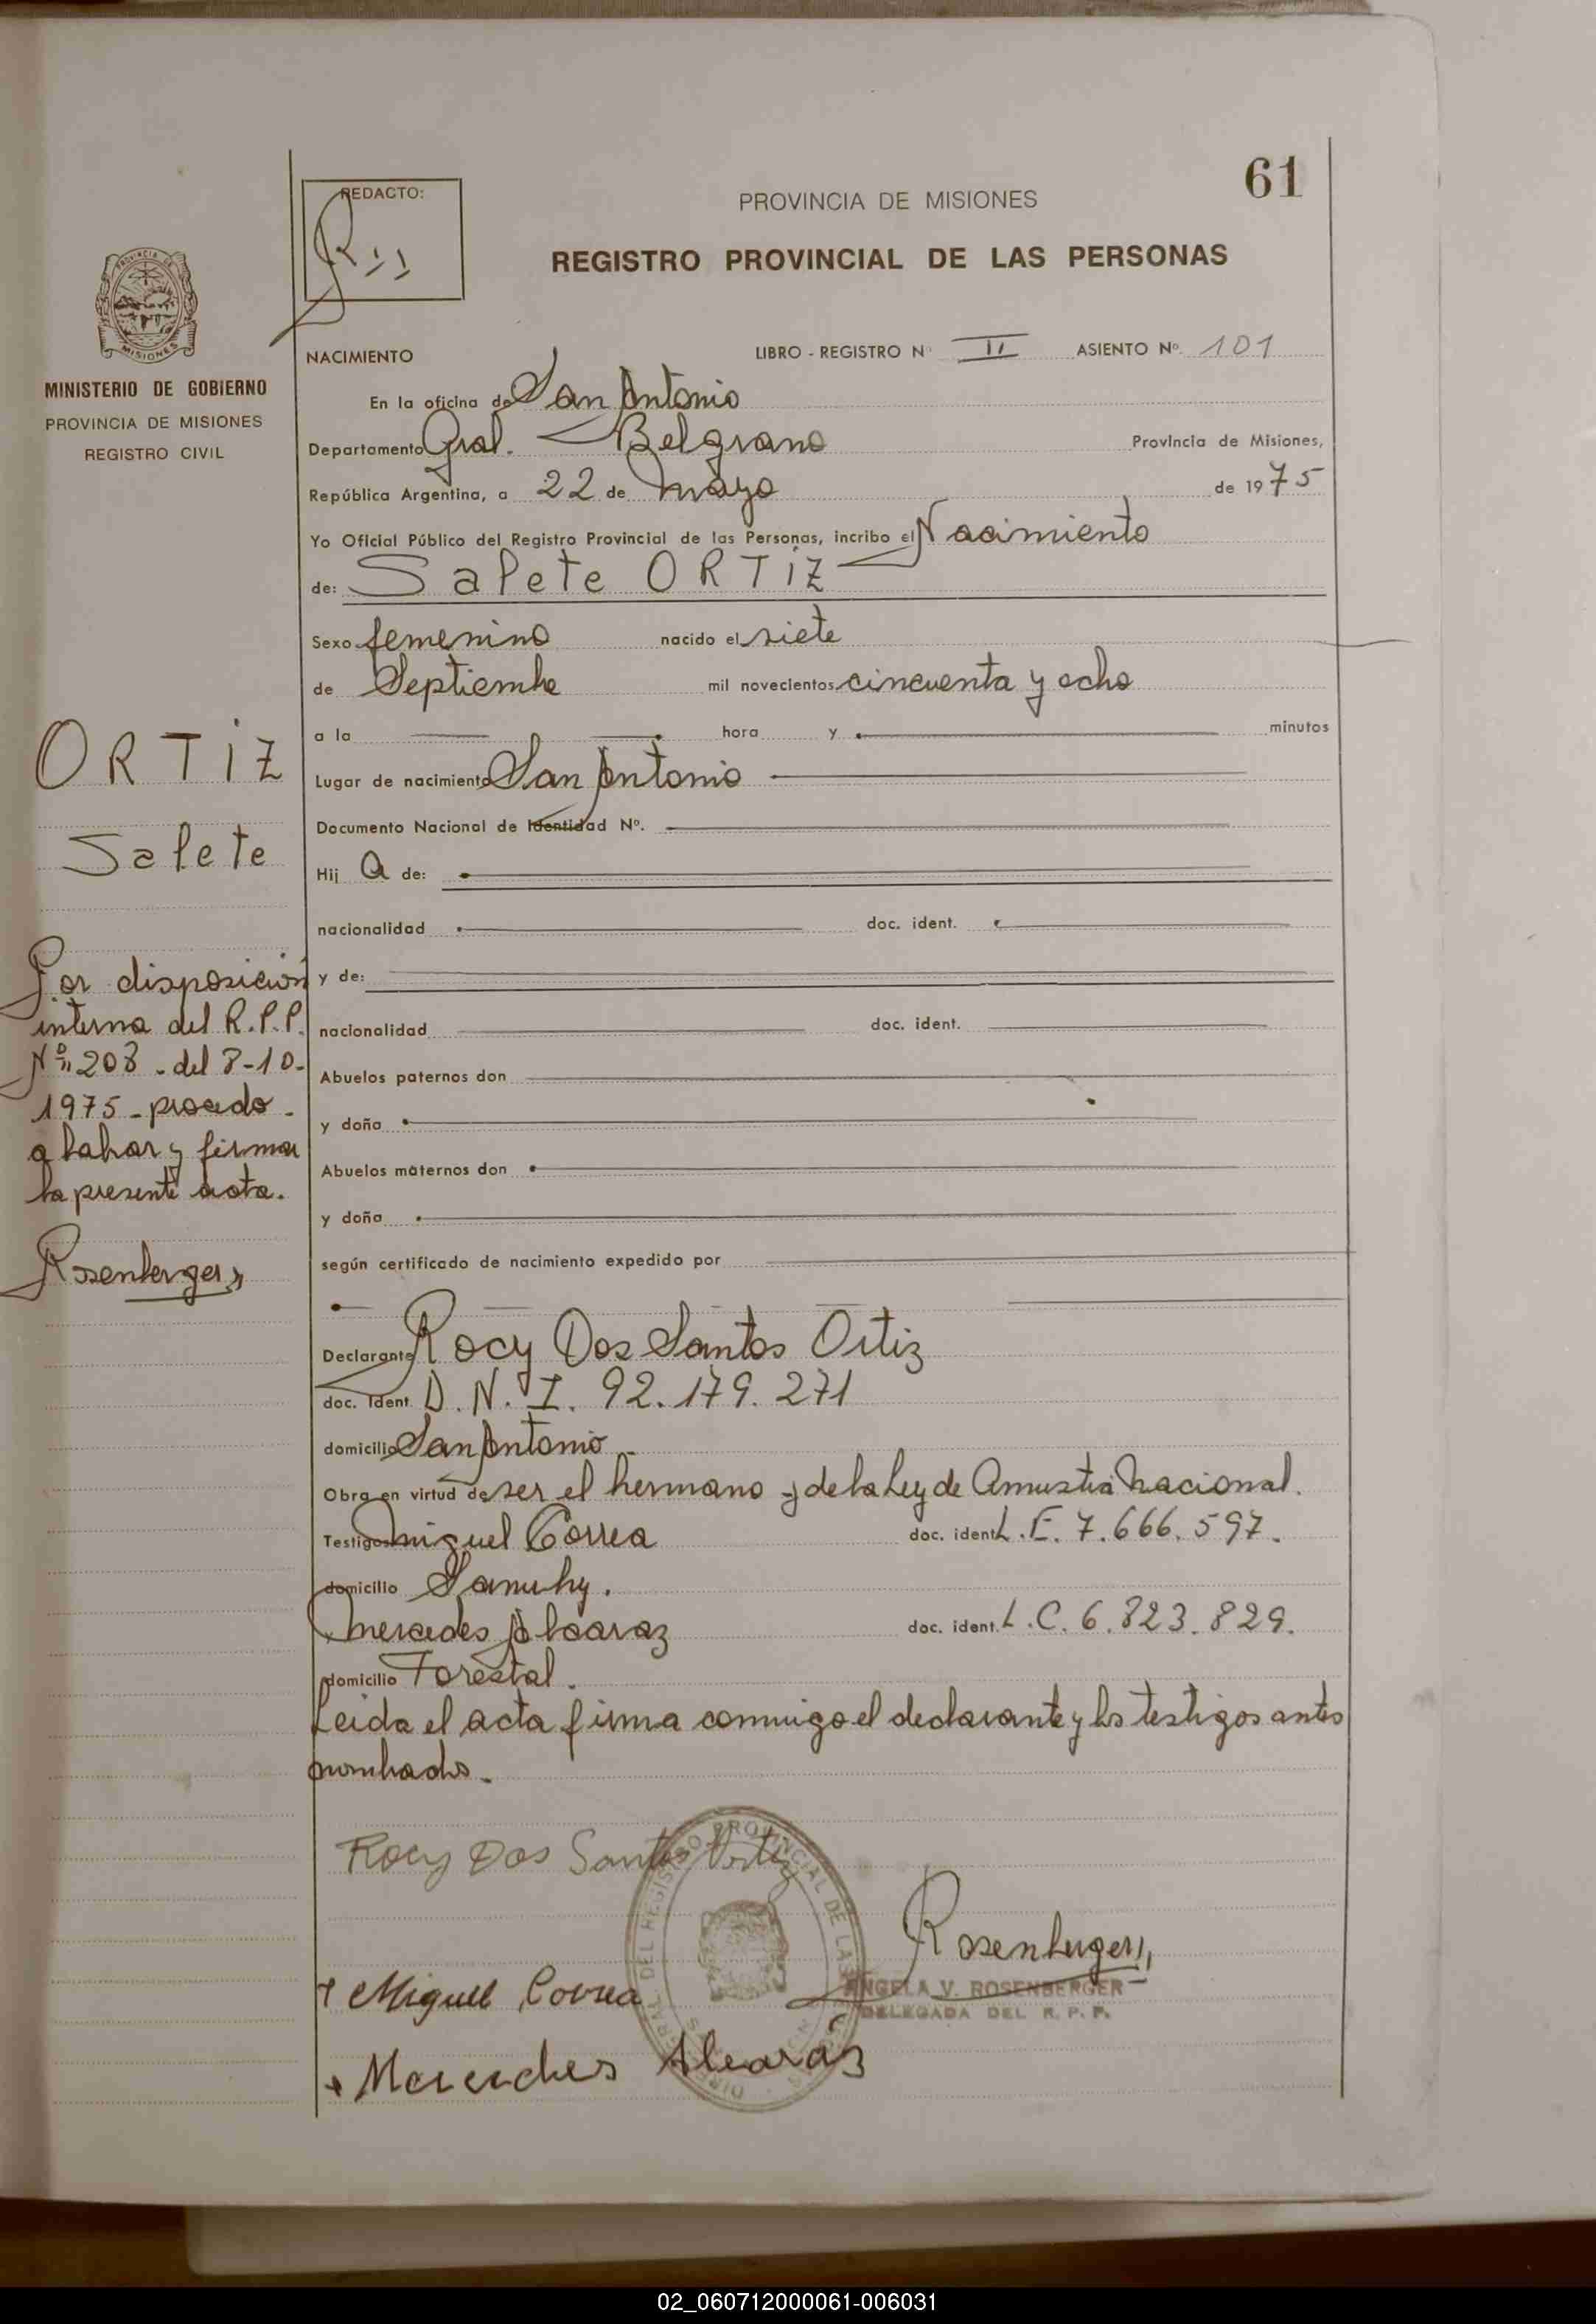 61
REDACTO:
PROVINCIA DE MISIONES
REGISTRO PROVINCIAL DE LAS PERSONAS
PROVINCIA DE MISIONES
MINISTERIO DE GOBIERNO
PROVINCIA DE MISIONES
REGISTRO CIVIL
NACIMIENTO LIBRO - REGISTRO Nº II ASIENTO Nº. 101
En la oficina de San Antonio
Departamento Gral. Belgrano Provincia de Misiones,
República Argentina, a 22 de Mayo de 1975
Yo Oficial Público del Registro Provincial de las Personas, incribo el Nacimiento
de: Salete ORTIZ
Sexo femenino nacido el siete
de Septiembre mil novecientos cincuenta y ocho
a la hora y minutos
Lugar de nacimiento San Antonio
Documento Nacional de Identidad Nº.
Hij a de:
nacionalidad doc. ident.
y de:
nacionalidad doc. ident.
Abuelos paternos don
y doña
Abuelos maternos don
y doña
según certificado de nacimiento expedido por
Declarante Rocy Dos Santos Ortiz
doc. ident. D.N.I. 92.179.271
domicilio San Antonio
Obra en virtud de ser el hermano y de la Ley de Amnistia Nacional.
Testigos Miguel Correa doc. ident. L.E. 7.666.597.
domicilio
Mercedes Alcaraz doc. ident. L.C. 6.823.829.
domicilio Forestal.
Leida el acta firma conmigo el declarante y los testigos antes
nombrados.
Rocy Dos Santos Ortiz
Rosenberger
ANGELA V. ROSENBERGER
DELEGADA DEL R. P. P.
Miguel Correa
Mercedes Alcaraz
DEL REGISTRO PROVINCIAL DE LAS
ORTIZ
Salete
Por disposición
interna del R.P.P.
Nº 208 - del 8-10-
1975 - procedo
a labrar y firmar
la presente acta.
Rosenberger
02_060712000061-006031